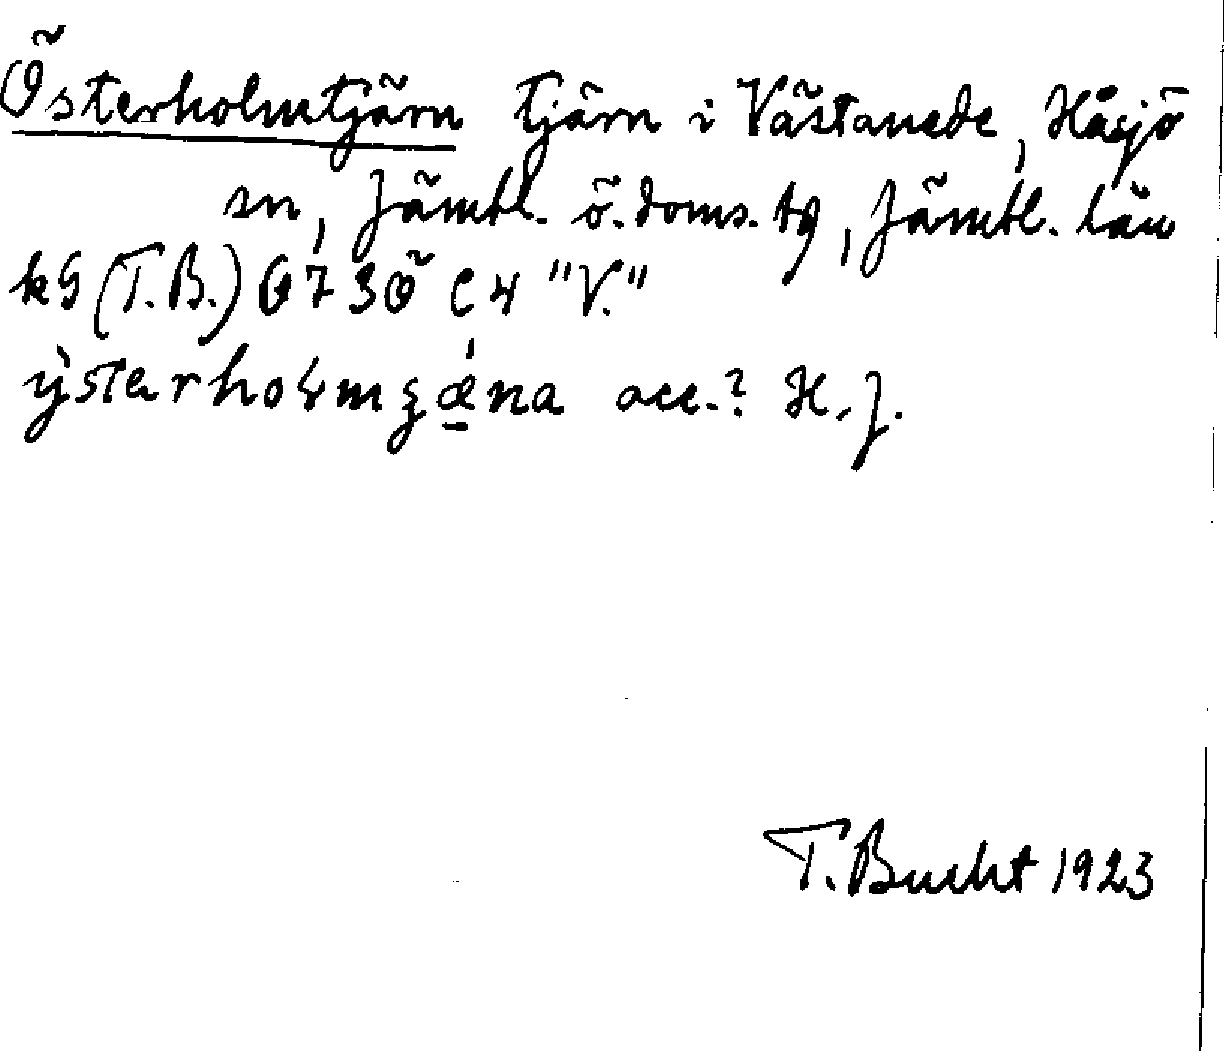 Österholmtjärn tjärn i Västanede, Håsjö
sn, Jämtl. ö. doms. tg, Jämtl. län
kG (T.B.) 6730 C4 "V."
acc.? H.J.
T. Bucht 1923